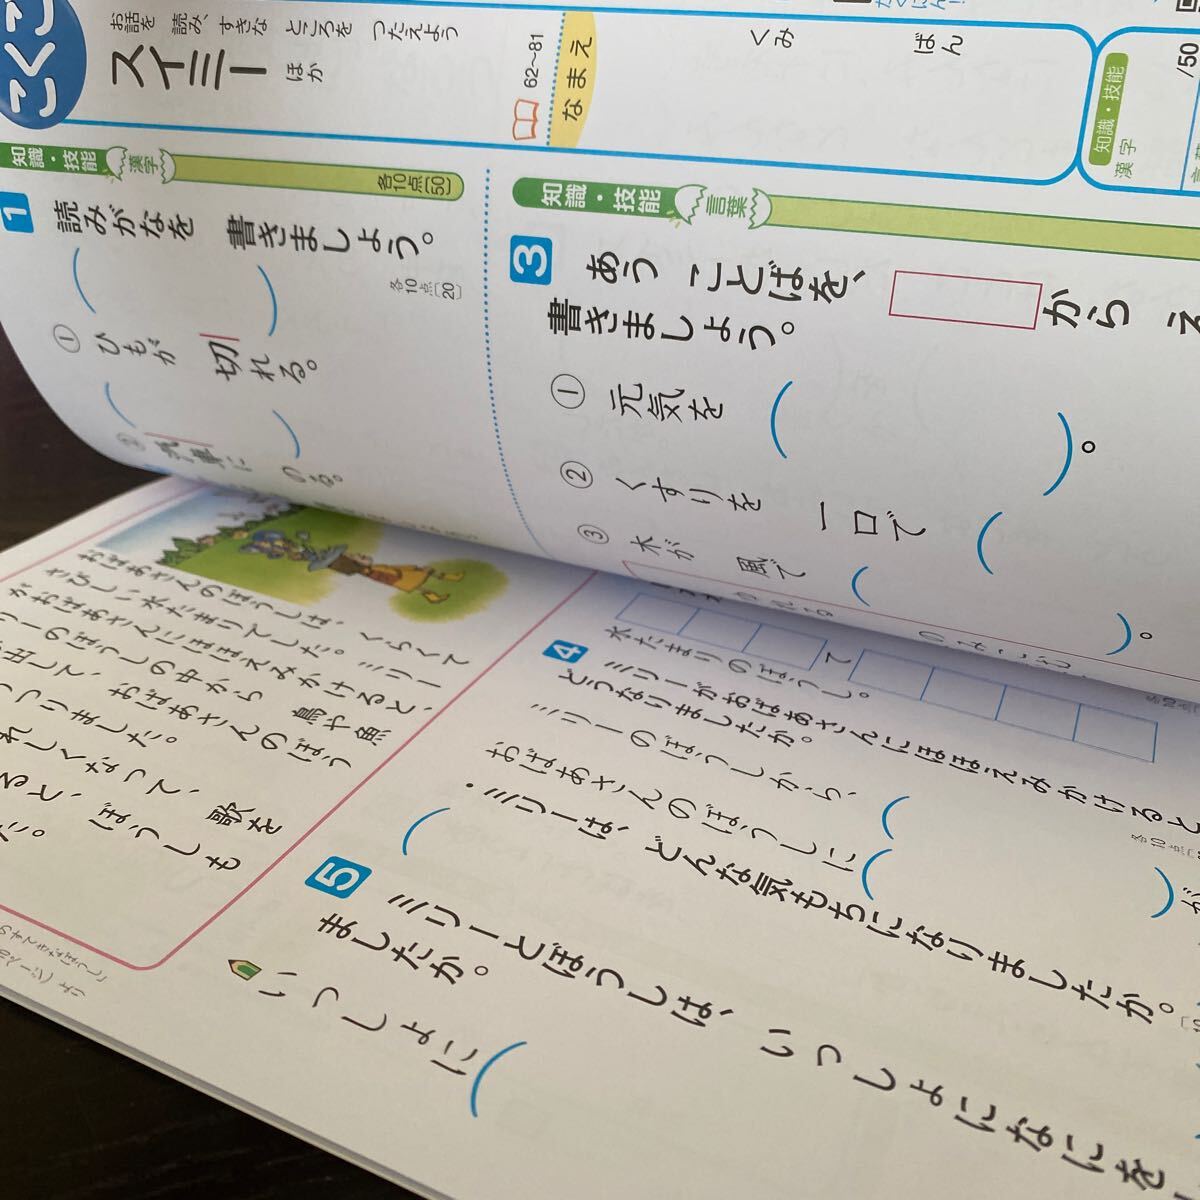 こくご
お話を 読み、すきな ところを つたえよう
スイミー ほか
62～81
なまえ
くみ
ばん
知識・技能
漢字
/50
知識・技能 漢字
各10点〔50〕
1 読みがなを 書きましょう。
各10点〔20〕
① ひもが 切れる。
② 汽車に のる。
知識・技能 言葉
3 あう ことばを、 から え
書きましょう。
① 元気を ( )。
② くすりを 一口で (
③ 木が 風で ( )。
おばあさんのぼうしは、くらくて
さびしい水たまりでした。ミリー
がおばあさんにほほえみかけると、
リーのぼうしの中から 鳥や魚
出して、おばあさんのぼう
つりました。
れしくなって、歌を
と、ぼうしも
だ。
て
水たまりのぼうし。
4 ミリーがおばあさんにほほえみかけると
どうなりましたか。
ミリーのぼうしから、( )が
おばあさんのぼうしに (
・ミリーは、どんな気もちになりましたか。
5 ミリーとぼうしは、いっしょになにを
ましたか。
いっしょに